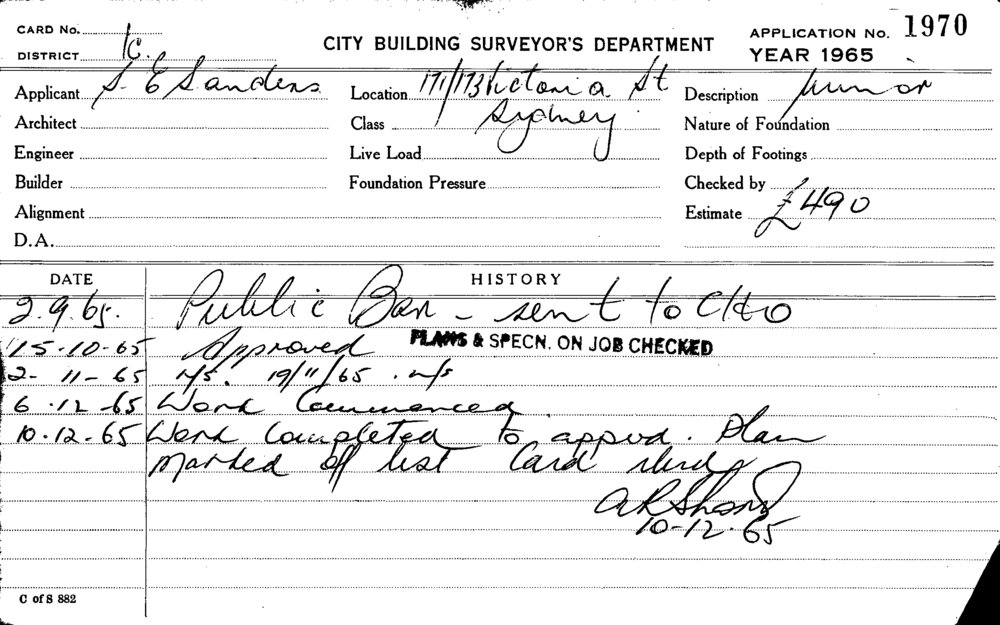 CARD No.
DISTRICT 1C.
CITY BUILDING SURVEYOR'S DEPARTMENT
APPLICATION No. 1970
YEAR 1965
Applicant S. E Sanders
Location 171/173 Victoria St
Sydney
Description Junior
Architect
Class
Nature of Foundation
Engineer
Live Load
Depth of Footings
Builder
Foundation Pressure
Checked by
Alignment
Estimate £490
D.A.
DATE HISTORY
2.9.65. Public Bar - sent to
15-10-65 Approved PLANS & SPECN. ON JOB CHECKED
2-11-65 n/s. 19/11/65. n/s
6.12-65 Work Commenced.
10.12.65 Work Completed to appvd. Plan
marked off list Card
10-12-65
C of S 882